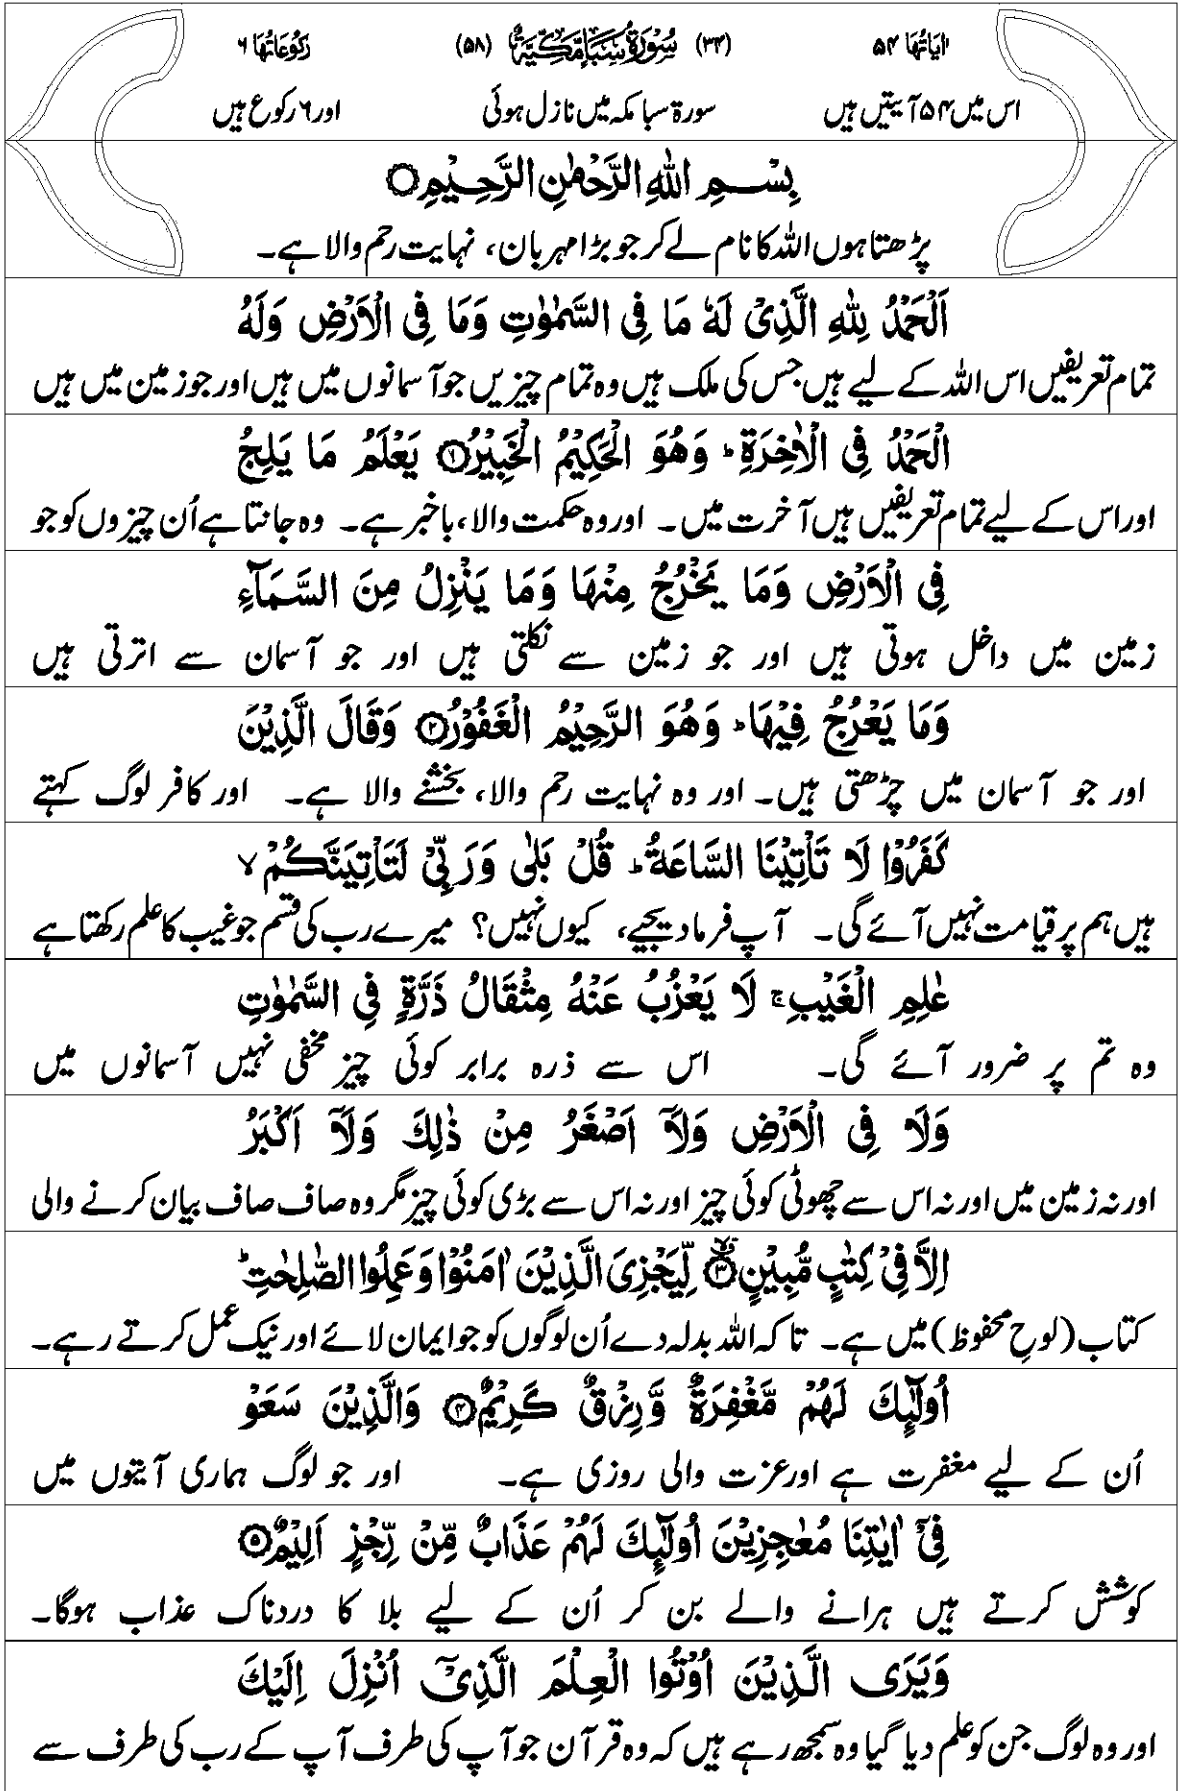 اٰيَاتُهَا ۵۴ (۳۴) سُوْرَةُ سَبَاٍ مَّكِّيَّةٌ (۵۸) رُكُوْعَاتُهَا ۶
اس میں ۵۴ آیتیں ہیں سورۃ سبا مکہ میں نازل ہوئی اور ۶ رکوع ہیں
بِسْمِ اللّٰهِ الرَّحْمٰنِ الرَّحِيْمِ۝
پڑھتا ہوں اللہ کا نام لے کر جو بڑا مہربان، نہایت رحم والا ہے۔
اَلْحَمْدُ لِلّٰهِ الَّذِیْ لَهٗ مَا فِی السَّمٰوٰتِ وَمَا فِی الْاَرْضِ وَلَهُ
تمام تعریفیں اس اللہ کے لیے ہیں جس کی ملک ہیں وہ تمام چیزیں جو آسمانوں میں ہیں اور جو زمین میں ہیں
الْحَمْدُ فِی الْاٰخِرَةِ ؕ وَهُوَ الْحَكِیْمُ الْخَبِیْرُ۝۱ یَعْلَمُ مَا یَلِجُ
اور اس کے لیے تمام تعریفیں ہیں آخرت میں۔ اور وہ حکمت والا، باخبر ہے۔ وہ جانتا ہے اُن چیزوں کو جو
فِی الْاَرْضِ وَمَا یَخْرُجُ مِنْهَا وَمَا یَنْزِلُ مِنَ السَّمَآءِ
زمین میں داخل ہوتی ہیں اور جو زمین سے نکلتی ہیں اور جو آسمان سے اترتی ہیں
وَمَا یَعْرُجُ فِیْهَا ؕ وَهُوَ الرَّحِیْمُ الْغَفُوْرُ۝۲ وَقَالَ الَّذِیْنَ
اور جو آسمان میں چڑھتی ہیں۔ اور وہ نہایت رحم والا، بخشنے والا ہے۔ اور کافر لوگ کہتے
كَفَرُوْا لَا تَاْتِیْنَا السَّاعَةُ ؕ قُلْ بَلٰی وَرَبِّیْ لَتَاْتِیَنَّكُمْ ۙ
ہیں ہم پر قیامت نہیں آئے گی۔ آپ فرما دیجیے، کیوں نہیں؟ میرے رب کی قسم جو غیب کا علم رکھتا ہے
عٰلِمِ الْغَیْبِ ۚ لَا یَعْزُبُ عَنْهُ مِثْقَالُ ذَرَّةٍ فِی السَّمٰوٰتِ
وہ تم پر ضرور آئے گی۔ اس سے ذرہ برابر کوئی چیز مخفی نہیں آسمانوں میں
وَلَا فِی الْاَرْضِ وَلَاۤ اَصْغَرُ مِنْ ذٰلِكَ وَلَاۤ اَكْبَرُ
اور نہ زمین میں اور نہ اس سے چھوٹی کوئی چیز اور نہ اس سے بڑی کوئی چیز مگر وہ صاف صاف بیان کرنے والی
اِلَّا فِیْ كِتٰبٍ مُّبِیْنٍ۝۳ۙ لِّیَجْزِیَ الَّذِیْنَ اٰمَنُوْا وَعَمِلُوا الصّٰلِحٰتِ ؕ
کتاب (لوحِ محفوظ) میں ہے۔ تاکہ اللہ بدلہ دے اُن لوگوں کو جو ایمان لائے اور نیک عمل کرتے رہے۔
اُولٰٓىِٕكَ لَهُمْ مَّغْفِرَةٌ وَّرِزْقٌ كَرِیْمٌ۝۴ وَالَّذِیْنَ سَعَوْ
اُن کے لیے مغفرت ہے اور عزت والی روزی ہے۔ اور جو لوگ ہماری آیتوں میں
فِیْۤ اٰیٰتِنَا مُعٰجِزِیْنَ اُولٰٓىِٕكَ لَهُمْ عَذَابٌ مِّنْ رِّجْزٍ اَلِیْمٌ۝۵
کوشش کرتے ہیں ہرانے والے بن کر اُن کے لیے بلا کا دردناک عذاب ہوگا۔
وَیَرَی الَّذِیْنَ اُوْتُوا الْعِلْمَ الَّذِیْۤ اُنْزِلَ اِلَیْكَ
اور وہ لوگ جن کو علم دیا گیا وہ سمجھ رہے ہیں کہ وہ قرآن جو آپ کی طرف آپ کے رب کی طرف سے